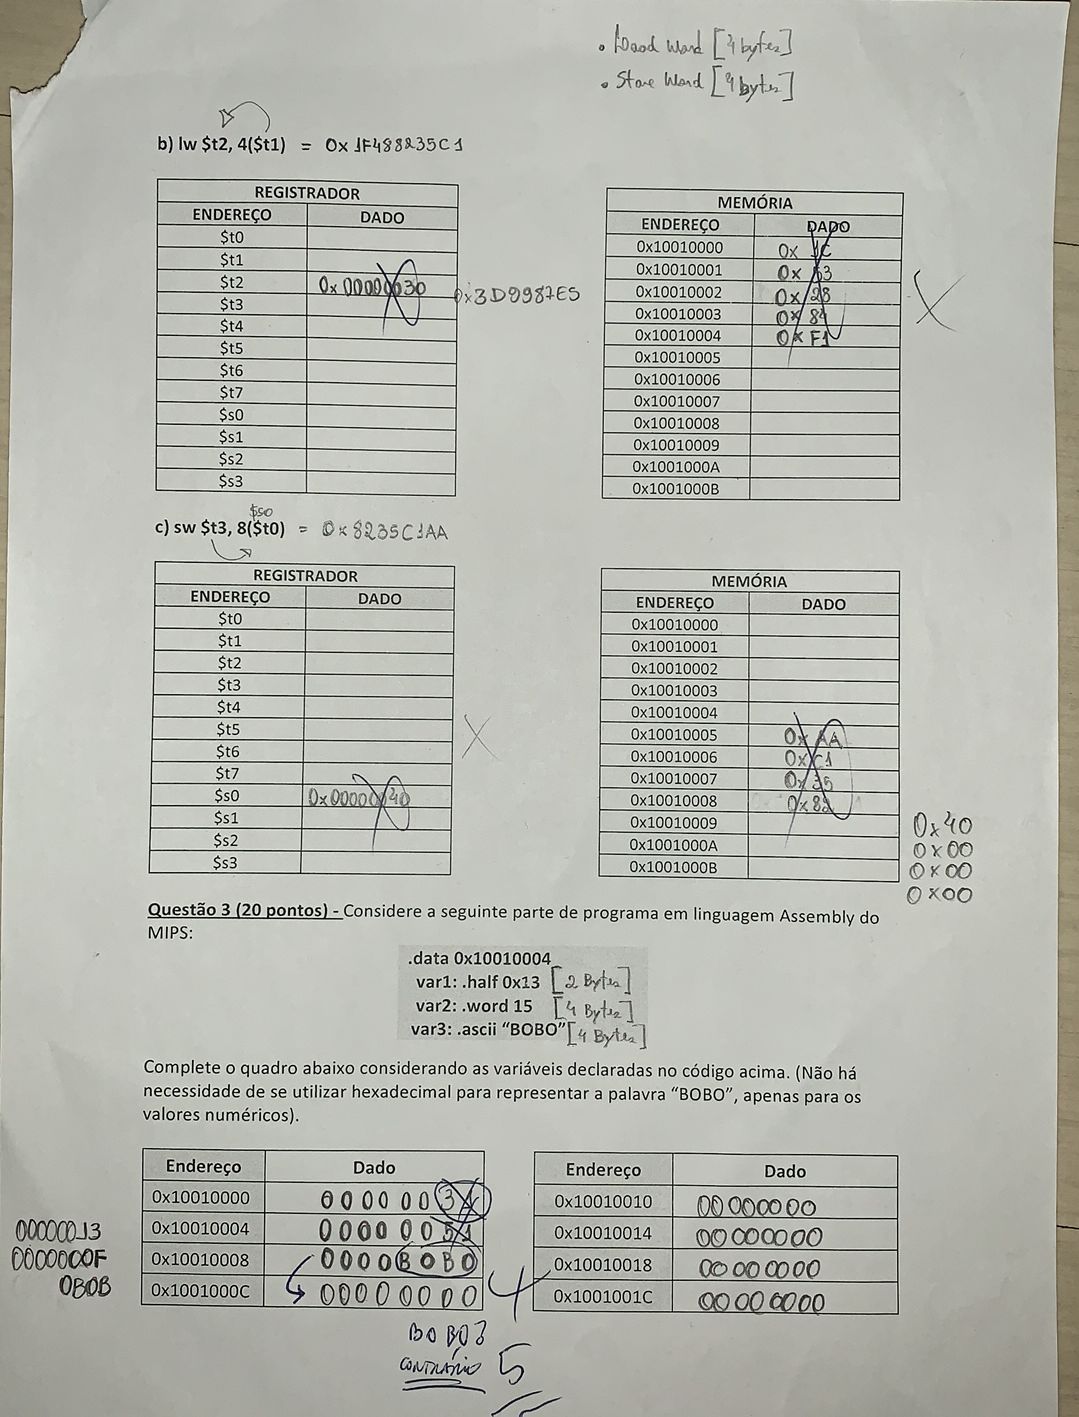 • Load Word [4 bytes]
• Store Word [4 bytes]
b) lw $t2, 4($t1) = 0x1F488235C1
REGISTRADOR
ENDEREÇO DADO
$t0
$t1
$t2 0x00000030 0x3D9987E5
$t3
$t4
$t5
$t6
$t7
$s0
$s1
$s2
$s3
MEMÓRIA
ENDEREÇO DADO
0x10010000 0x
0x10010001 0x
0x10010002 0x28
0x10010003 0x84
0x10010004 0xF1
0x10010005
0x10010006
0x10010007
0x10010008
0x10010009
0x1001000A
0x1001000B
$s0
c) sw $t3, 8($t0) = 0x8235C1AA
REGISTRADOR
ENDEREÇO DADO
$t0
$t1
$t2
$t3
$t4
$t5
$t6
$t7
$s0 0x00000040
$s1
$s2
$s3
MEMÓRIA
ENDEREÇO DADO
0x10010000
0x10010001
0x10010002
0x10010003
0x10010004
0x10010005 0xAA
0x10010006 0xC1
0x10010007 0x35
0x10010008 0x82
0x10010009
0x1001000A
0x1001000B
0x40
0x00
0x00
0x00
Questão 3 (20 pontos) - Considere a seguinte parte de programa em linguagem Assembly do
MIPS:
.data 0x10010004
var1: .half 0x13 [2 Bytes]
var2: .word 15 [4 Bytes]
var3: .ascii “BOBO” [4 Bytes]
Complete o quadro abaixo considerando as variáveis declaradas no código acima. (Não há
necessidade de se utilizar hexadecimal para representar a palavra “BOBO”, apenas para os
valores numéricos).
Endereço Dado
0x10010000 000000
0x10010004 000000
0x10010008 0000BOBO
0x1001000C 00000000
00000013
0000000F
OBOB
Endereço Dado
0x10010010 00000000
0x10010014 00000000
0x10010018 00000000
0x1001001C 00000000
BOBO?
CONTRÁRIO
5